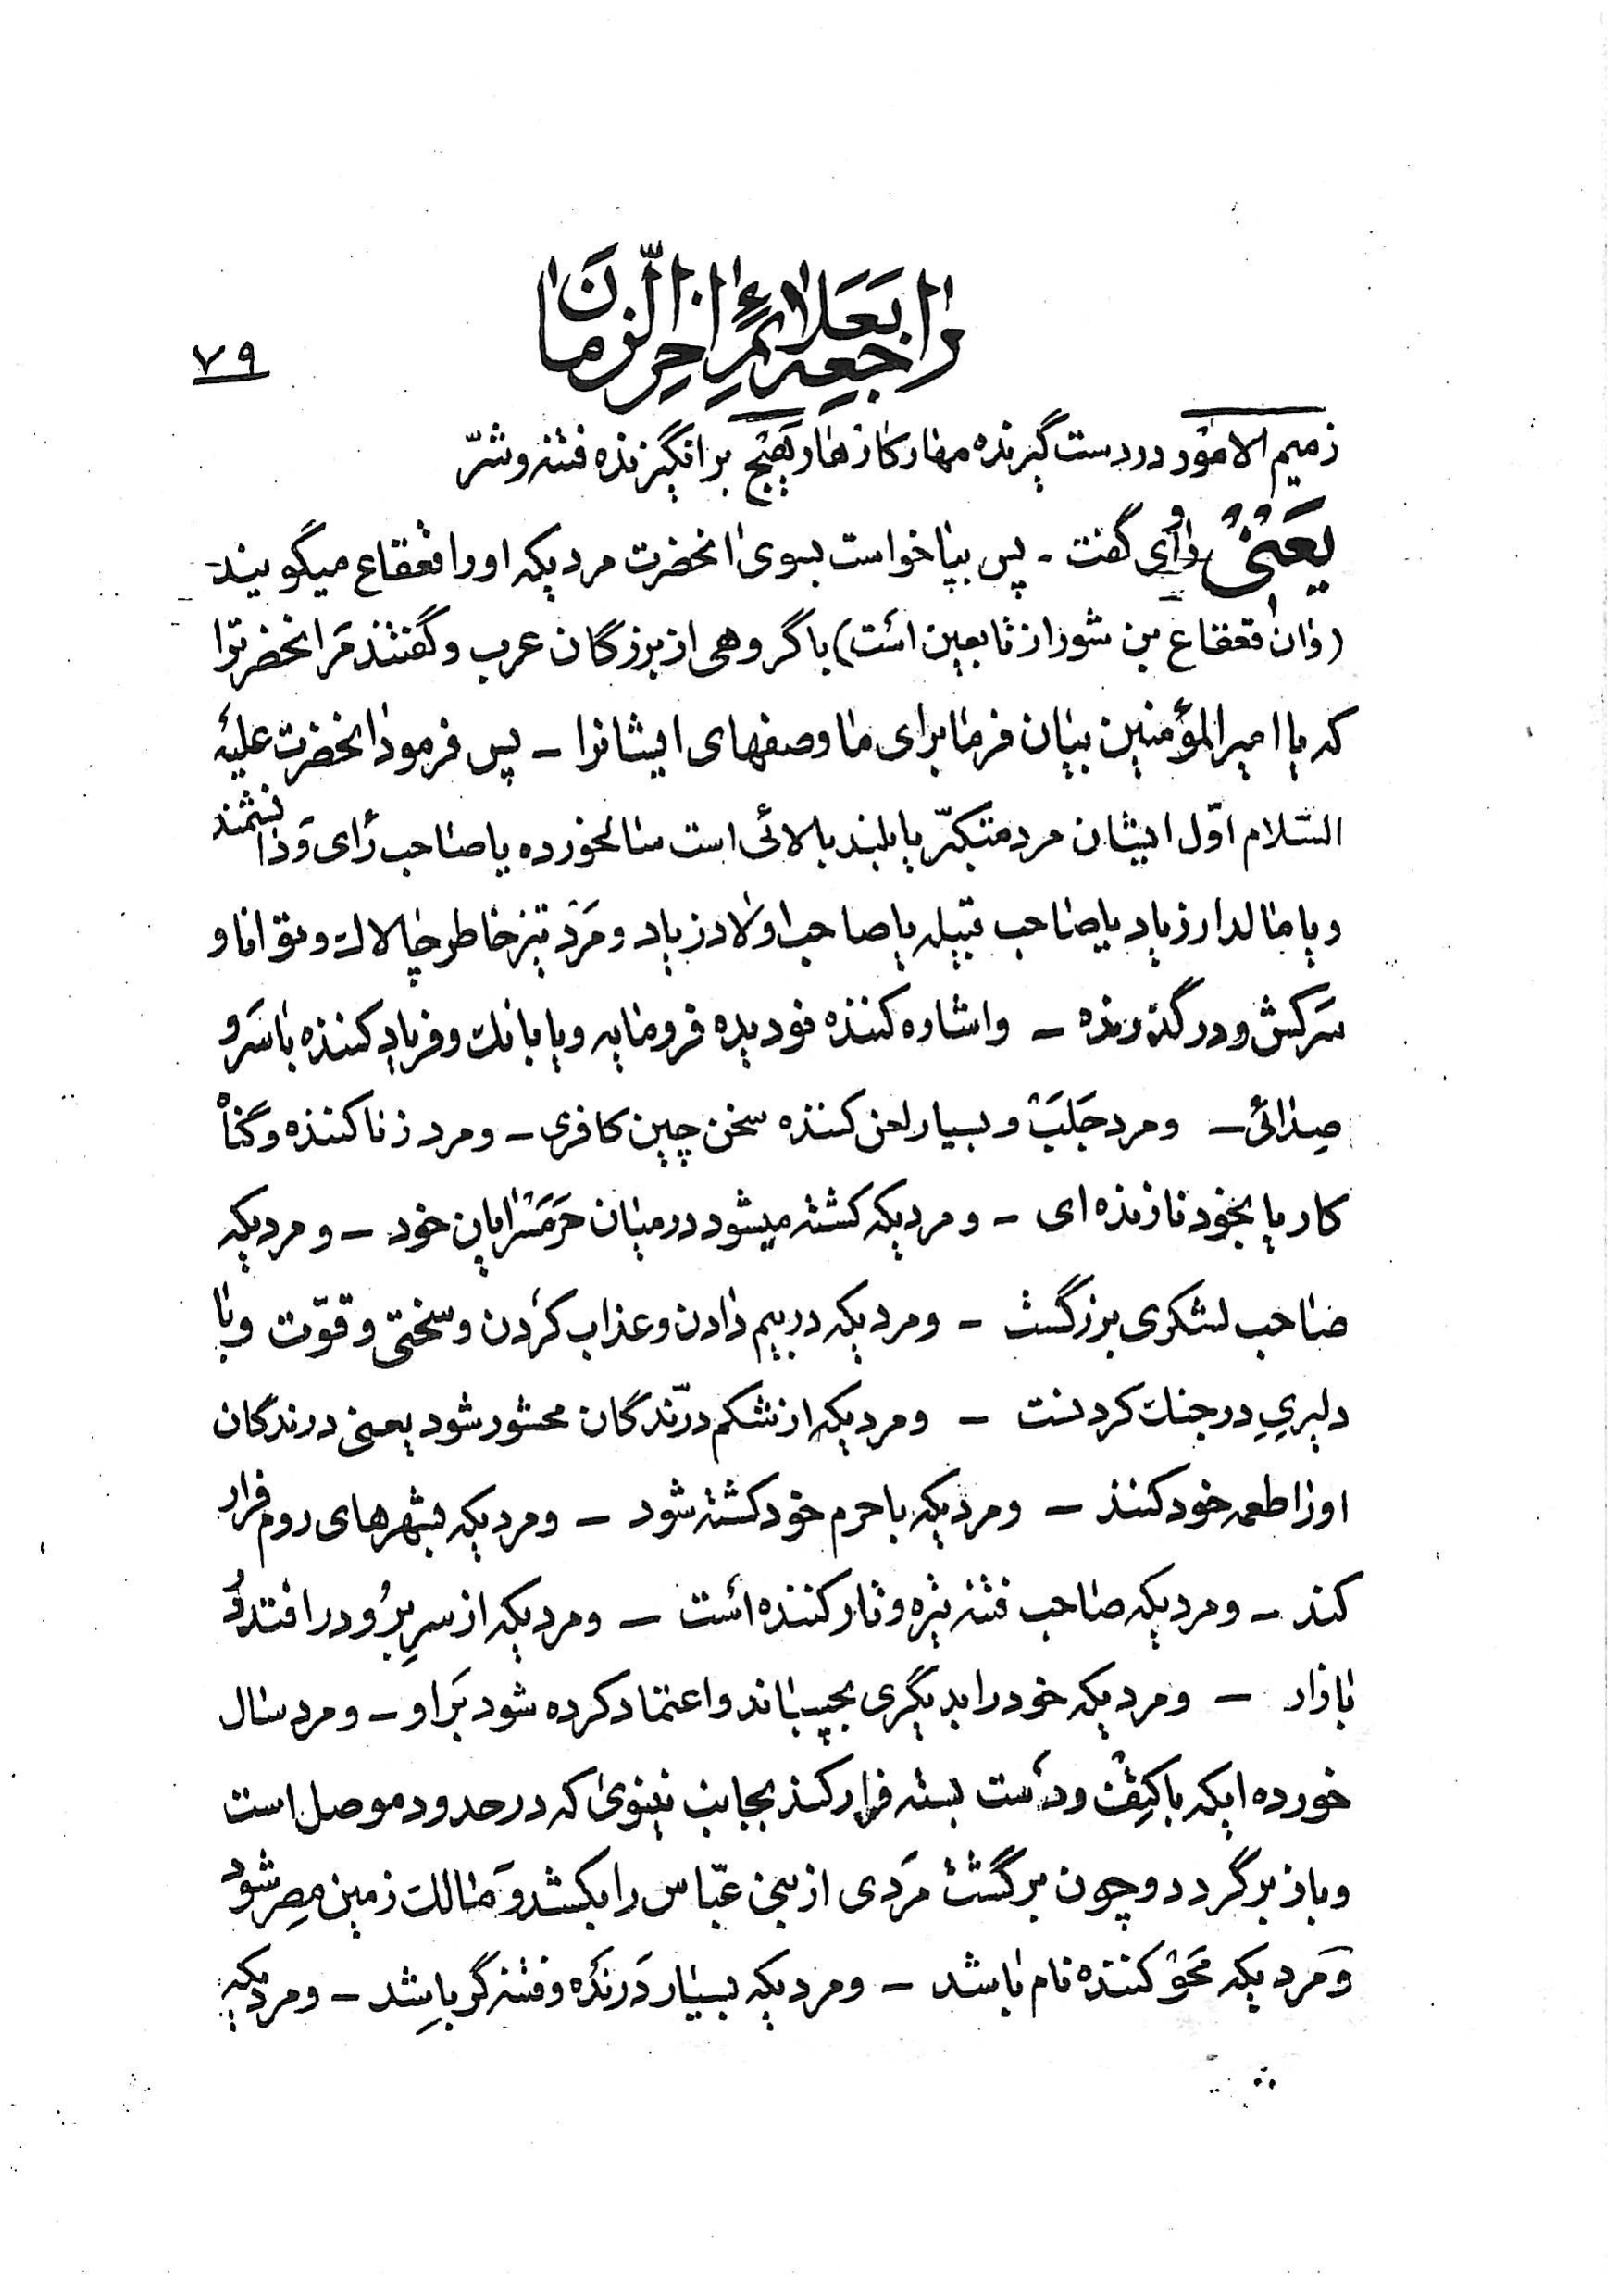 راجعه بعلائم اخر الزمان
۷۹
زمیم الامور در دست گیرنده مهار کارها یهیج برانگیزنده فتنه و شرّ
یعنی راوی گفت - پس بپا خواست بسوی انحضرت مردیکه او را قعقاع میگویند
(وان قعقاع بن شور از تابعین است) با گروهی از بزرگان عرب و گفتند مر انحضرترا
که یا امیرالمؤمنین بیان فرما برای ما وصفهای ایشانرا - پس فرمود انحضرت علیه
السّلام اوّل ایشان مرد متکبّر یا بلند بالائی است سالخورده یا صاحب رأی و دانشمند
و یا مالدار زیاد یا صاحب قبیله یا صاحب اولاد زیاد و مرد تیز خاطر چالاک و توانا و
سرکش و در گذرنده - و اشاره کننده نودیده فرومایه و یا بانک و فریاد کننده با سر و
صدائی - و مرد جلب و بسیار لعن کننده سخن چین کافری - و مرد زنا کننده و گناه
کار یا بخود نازنده ای - و مردیکه کشته میشود در میان حرمسرایان خود - و مردیکه
صاحب لشکری بزرگست - و مردیکه در بیم دادن و عذاب کردن و سختی و قوّت و با
دلیریِ در جنک کردنست - و مردیکه از شکم درّندگان محشور شود یعنی درندگان
او را طعمه خود کنند - و مردیکه با حرم خود کشته شود - و مردیکه بشهرهای روم فرار
کند - و مردیکه صاحب فتنه تیره و تار کننده است - و مردیکه از سر برو در افتد در
بازار - و مردیکه خود را بدیگری بچسباند و اعتماد کرده شود بر او - و مرد سال
خورده ایکه با کتف و دست بسته فرار کند بجانب نینوی که در حدود موصل است
و باز برگردد و چون برگشت مردی از بنی عبّاس را بکشد و مالک زمین مصر شود
و مردیکه محو کننده نام باشد - و مردیکه بسیار درنده و فتنه گر باشد - و مردیکه